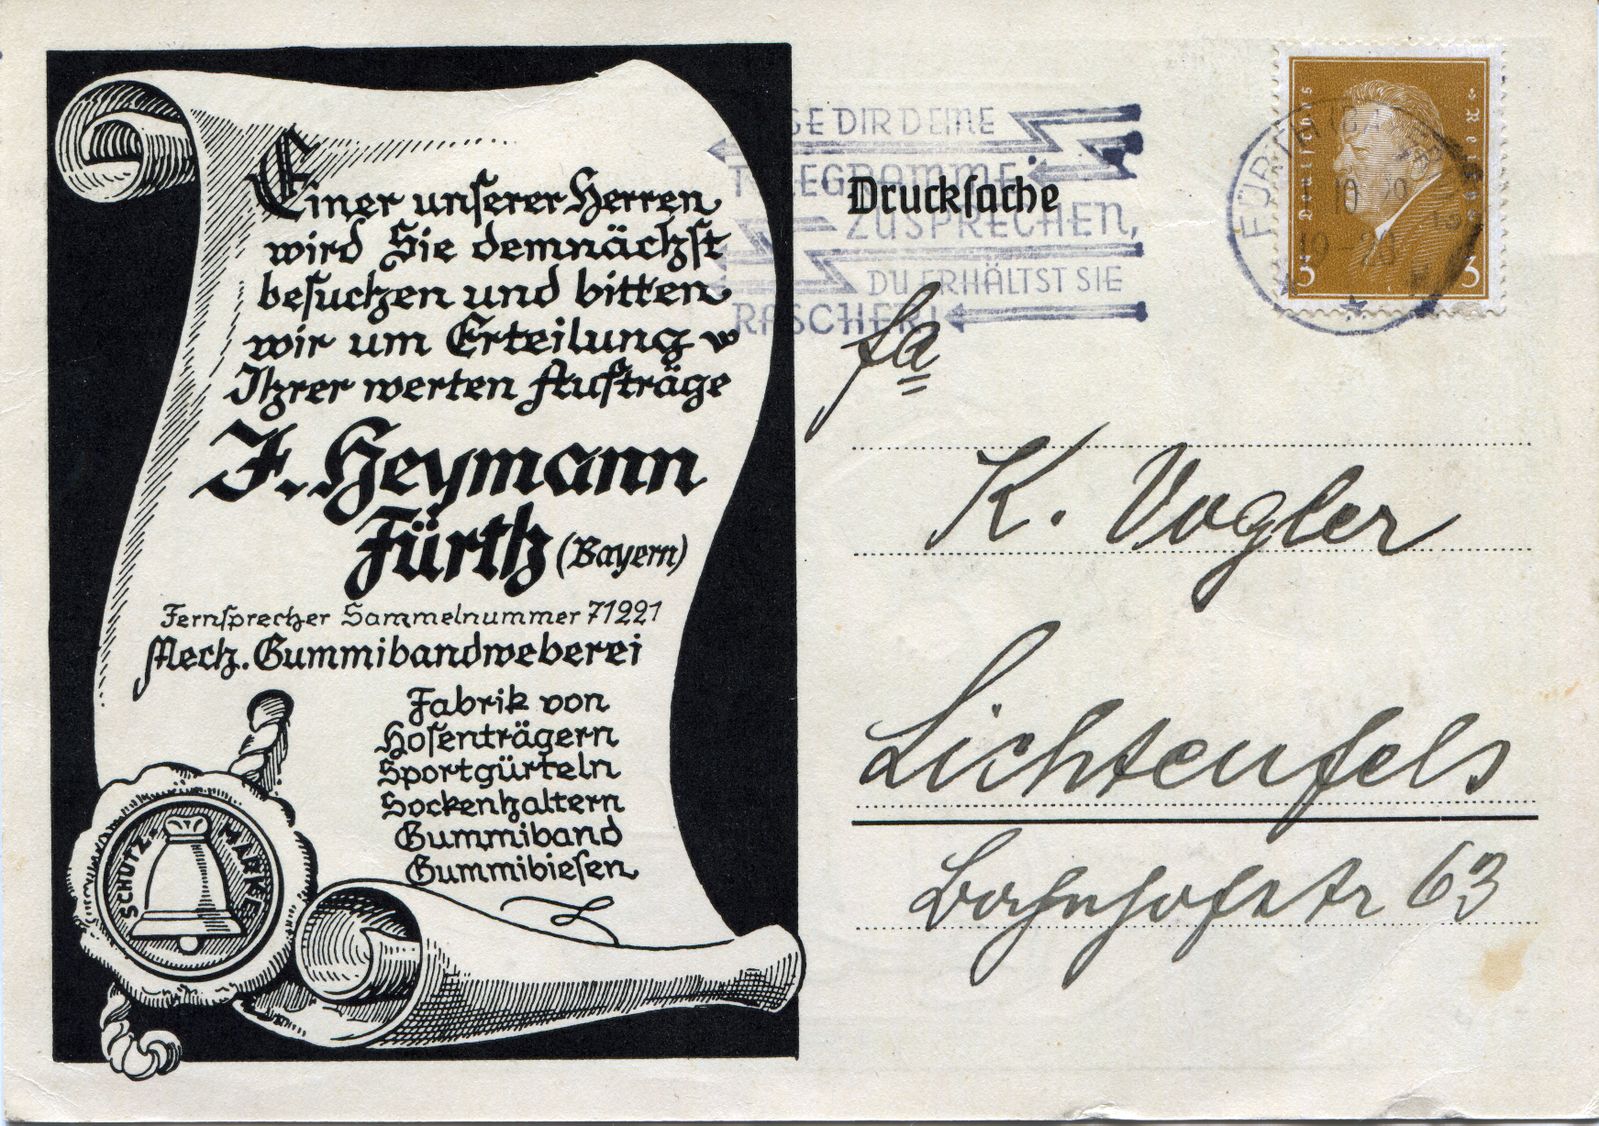 Einer unserer Herren
wird Sie demnächst
besuchen und bitten
wir um Erteilung
Ihrer werten Aufträge
J. Heymann
Fürth (Bayern)
Fernsprecher Sammelnummer 71221
Mech. Gummibandweberei
Fabrik von
Hosenträgern
Sportgürteln
Sockenhaltern
Gummiband
Gummibiesen
SCHUTZ-MARKE
DIR DEINE
TELEGRAMME
ZUSPRECHEN,
DU ERHÄLTST SIE
RASCHER!
Drucksache
Deutsches Reich
3 3
FÜRTH (BAYERN)
19-20
Fa
K. Vogler
Lichtenfels
Bahnhofstr 63